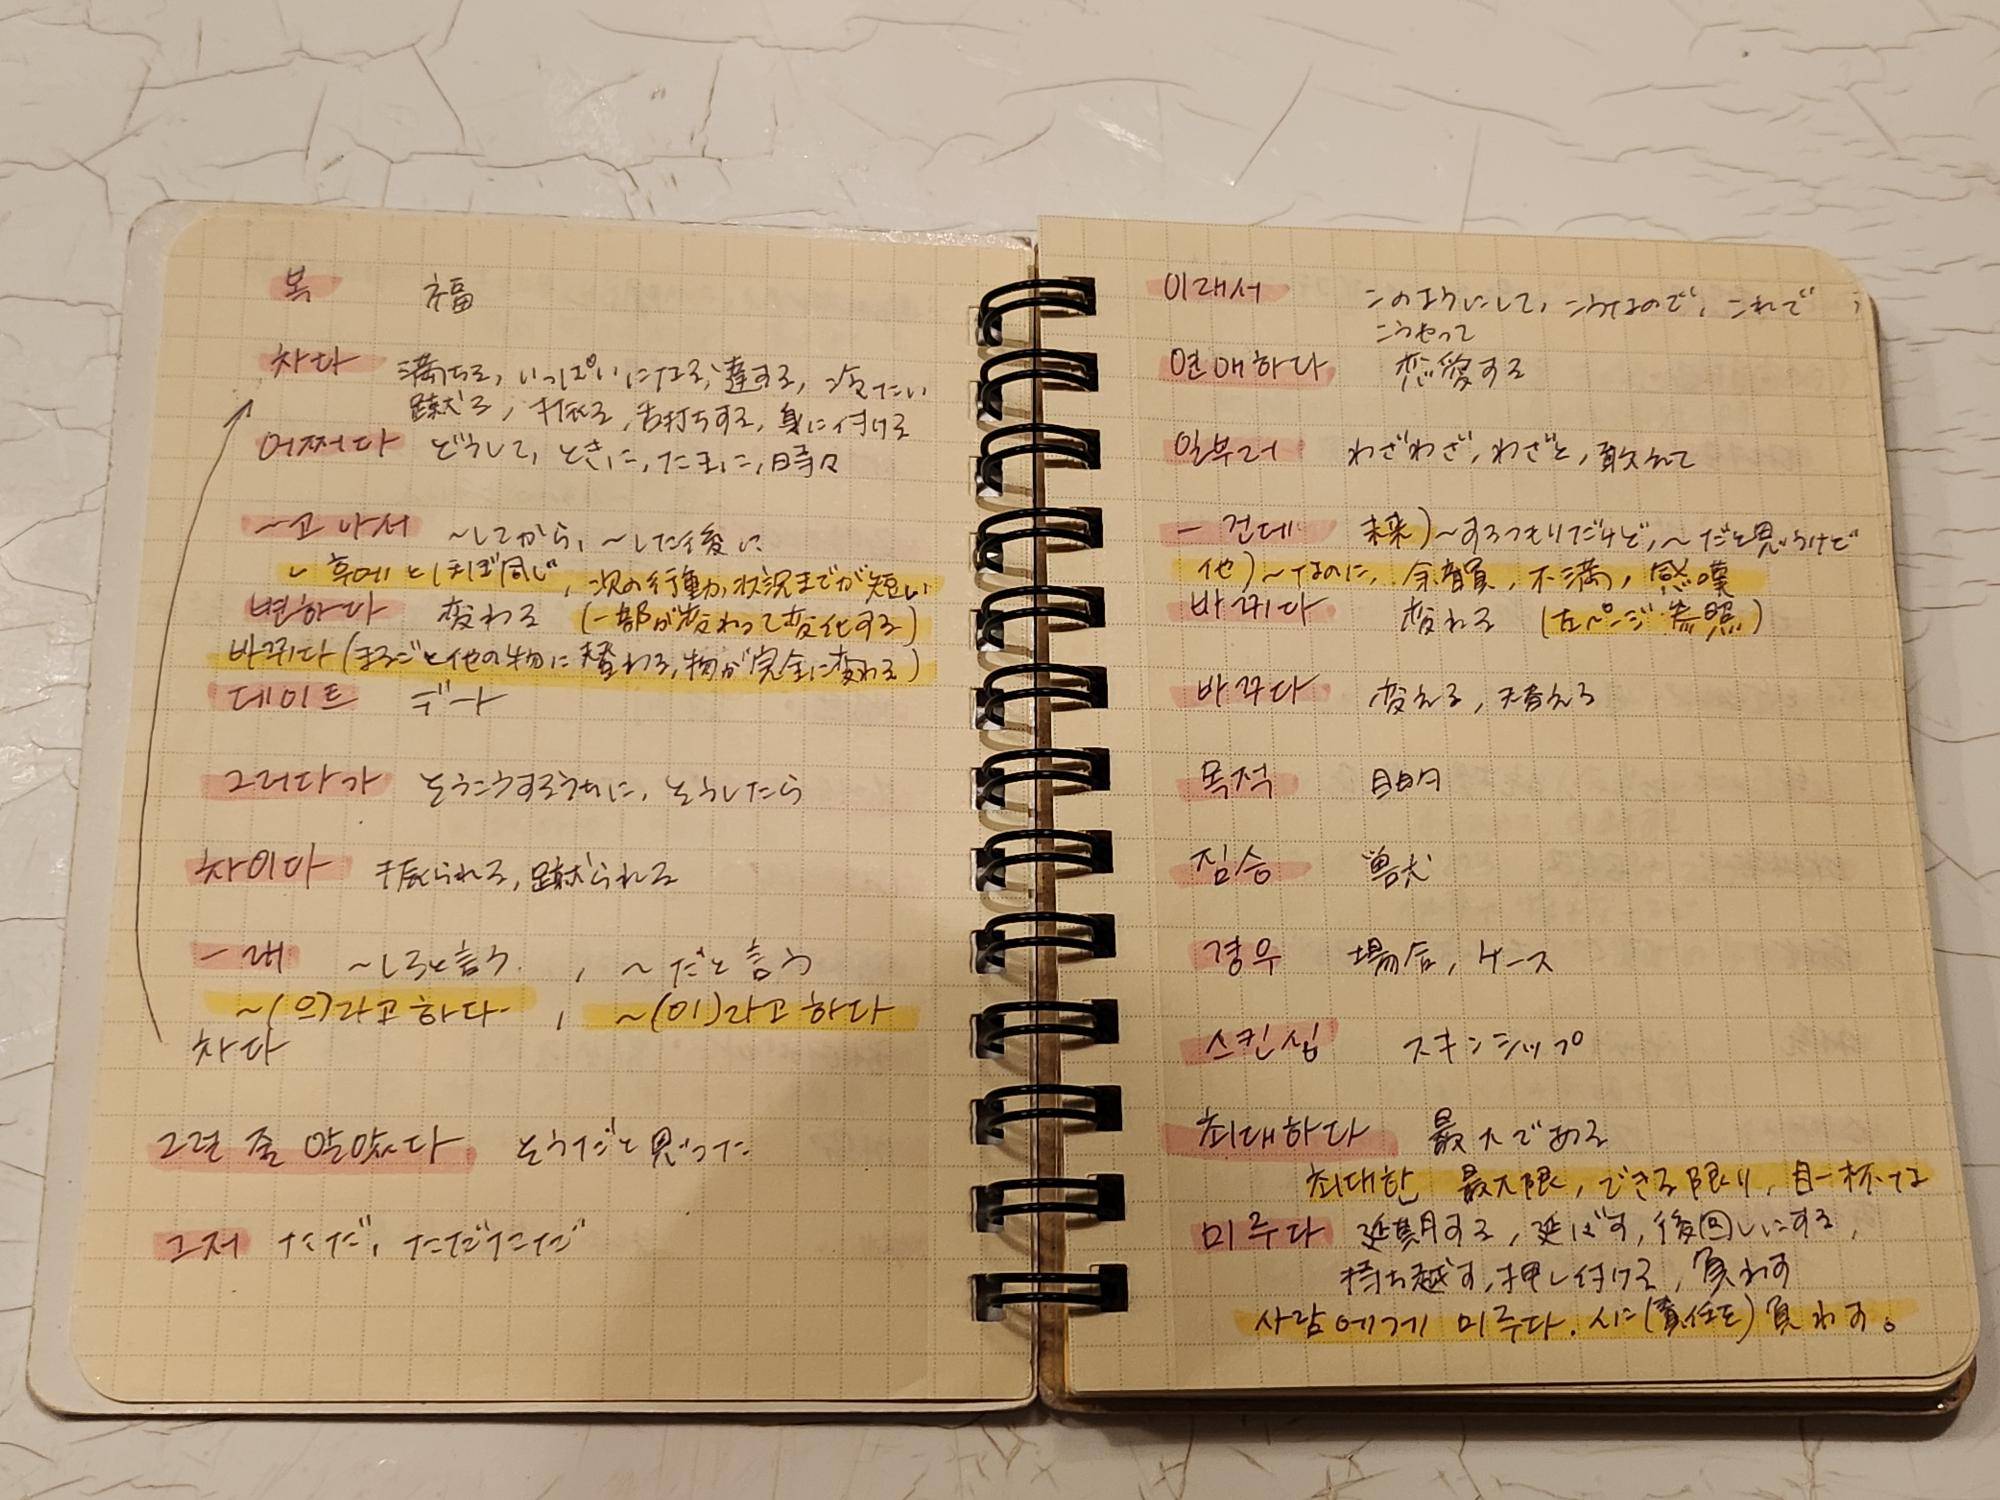 복 福
차다 満ちる, いっぱいになる, 達する, 冷たい
蹴る, 振る, 舌打ちする, 身に付ける
어쩌다 どうして, ときに, たまに, 時々
~고 나서 ~してから, ~した後に
후에とほぼ同じ, 次の行動、状況までが短い
변하다 変わる (一部が変わって変化する)
바뀌다 (まるごと他の物に替わる, 物が完全に変わる)
데이트 デート
그러다가 そうこうするうちに, そうしたら
차이다 振られる, 蹴られる
-래 ~しろと言う, ~だと言う
~(으)라고 하다, ~(이)라고 하다
차다
그런 줄 알았다 そうだと思った
그저 ただ, ただただ
이래서 このようにして, こうなので, これで
こうやって
연애하다 恋愛する
일부러 わざわざ, わざと, 敢えて
-건데 未来)~するつもりだけど, ~だと思うけど
他)~なのに, 余韻, 不満, 感嘆
바뀌다 変わる (左ページ参照)
바꾸다 変える, 替える
목적 目的
짐승 獣
경우 場合, ケース
스킨십 スキンシップ
최대하다 最大である
최대한 最大限, できる限り, 目一杯な
미루다 延期する, 延ばす, 後回しにする,
持ち越す, 押し付ける, 負わす
사람에게 미루다. 人に(責任を)負わす。